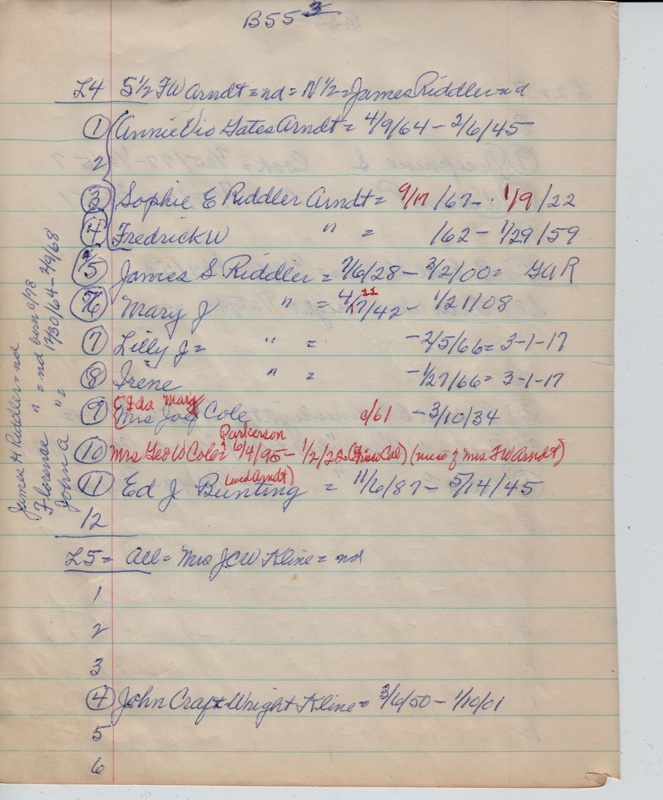 B55 3
L4 S 1/2 FW Arndt = nd = N 1/2 = James Riddler = nd
1 Annie Vio Gates Arndt = 4/9/64 - 2/6/45
2
3 Sophie E Riddler Arndt = 9/17/67 - 1/9/22
4 Fredrick W " = /62 - 1/29/59
5 James S Riddler = 7/6/28 - 3/2/00 = GAR
6 Mary J " = 4/11/42 - 1/21/08
7 Lilly J = " = - 2/5/66 = 3-1-17
8 Irene " = - 1/27/66 = 3-1-17
9 (Ida Mary) Mrs Joe Cole c/61 - 3/10/34
Parkerson
10 Mrs Geo W Cole = 10/4/95 - 1/2/20 (Cal) (niece of Mrs FW Arndt)
(uved Arndt)
11 Ed J Bunting = 11/6/87 - 5/14/45
12
L5 = All = Mrs JCW Kline = nd
1
2
3
4 John Craft Wright Kline = 3/6/50 - 1/10/01
5
6
James H Riddler = nd
Florence " = nd born c/78
John A " = 12/30/64 - 2/9/68